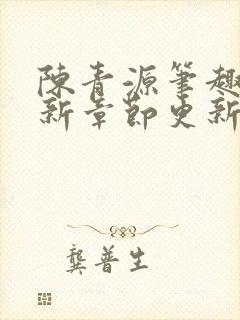 陳青源筆趣
新章節更新
龔普生